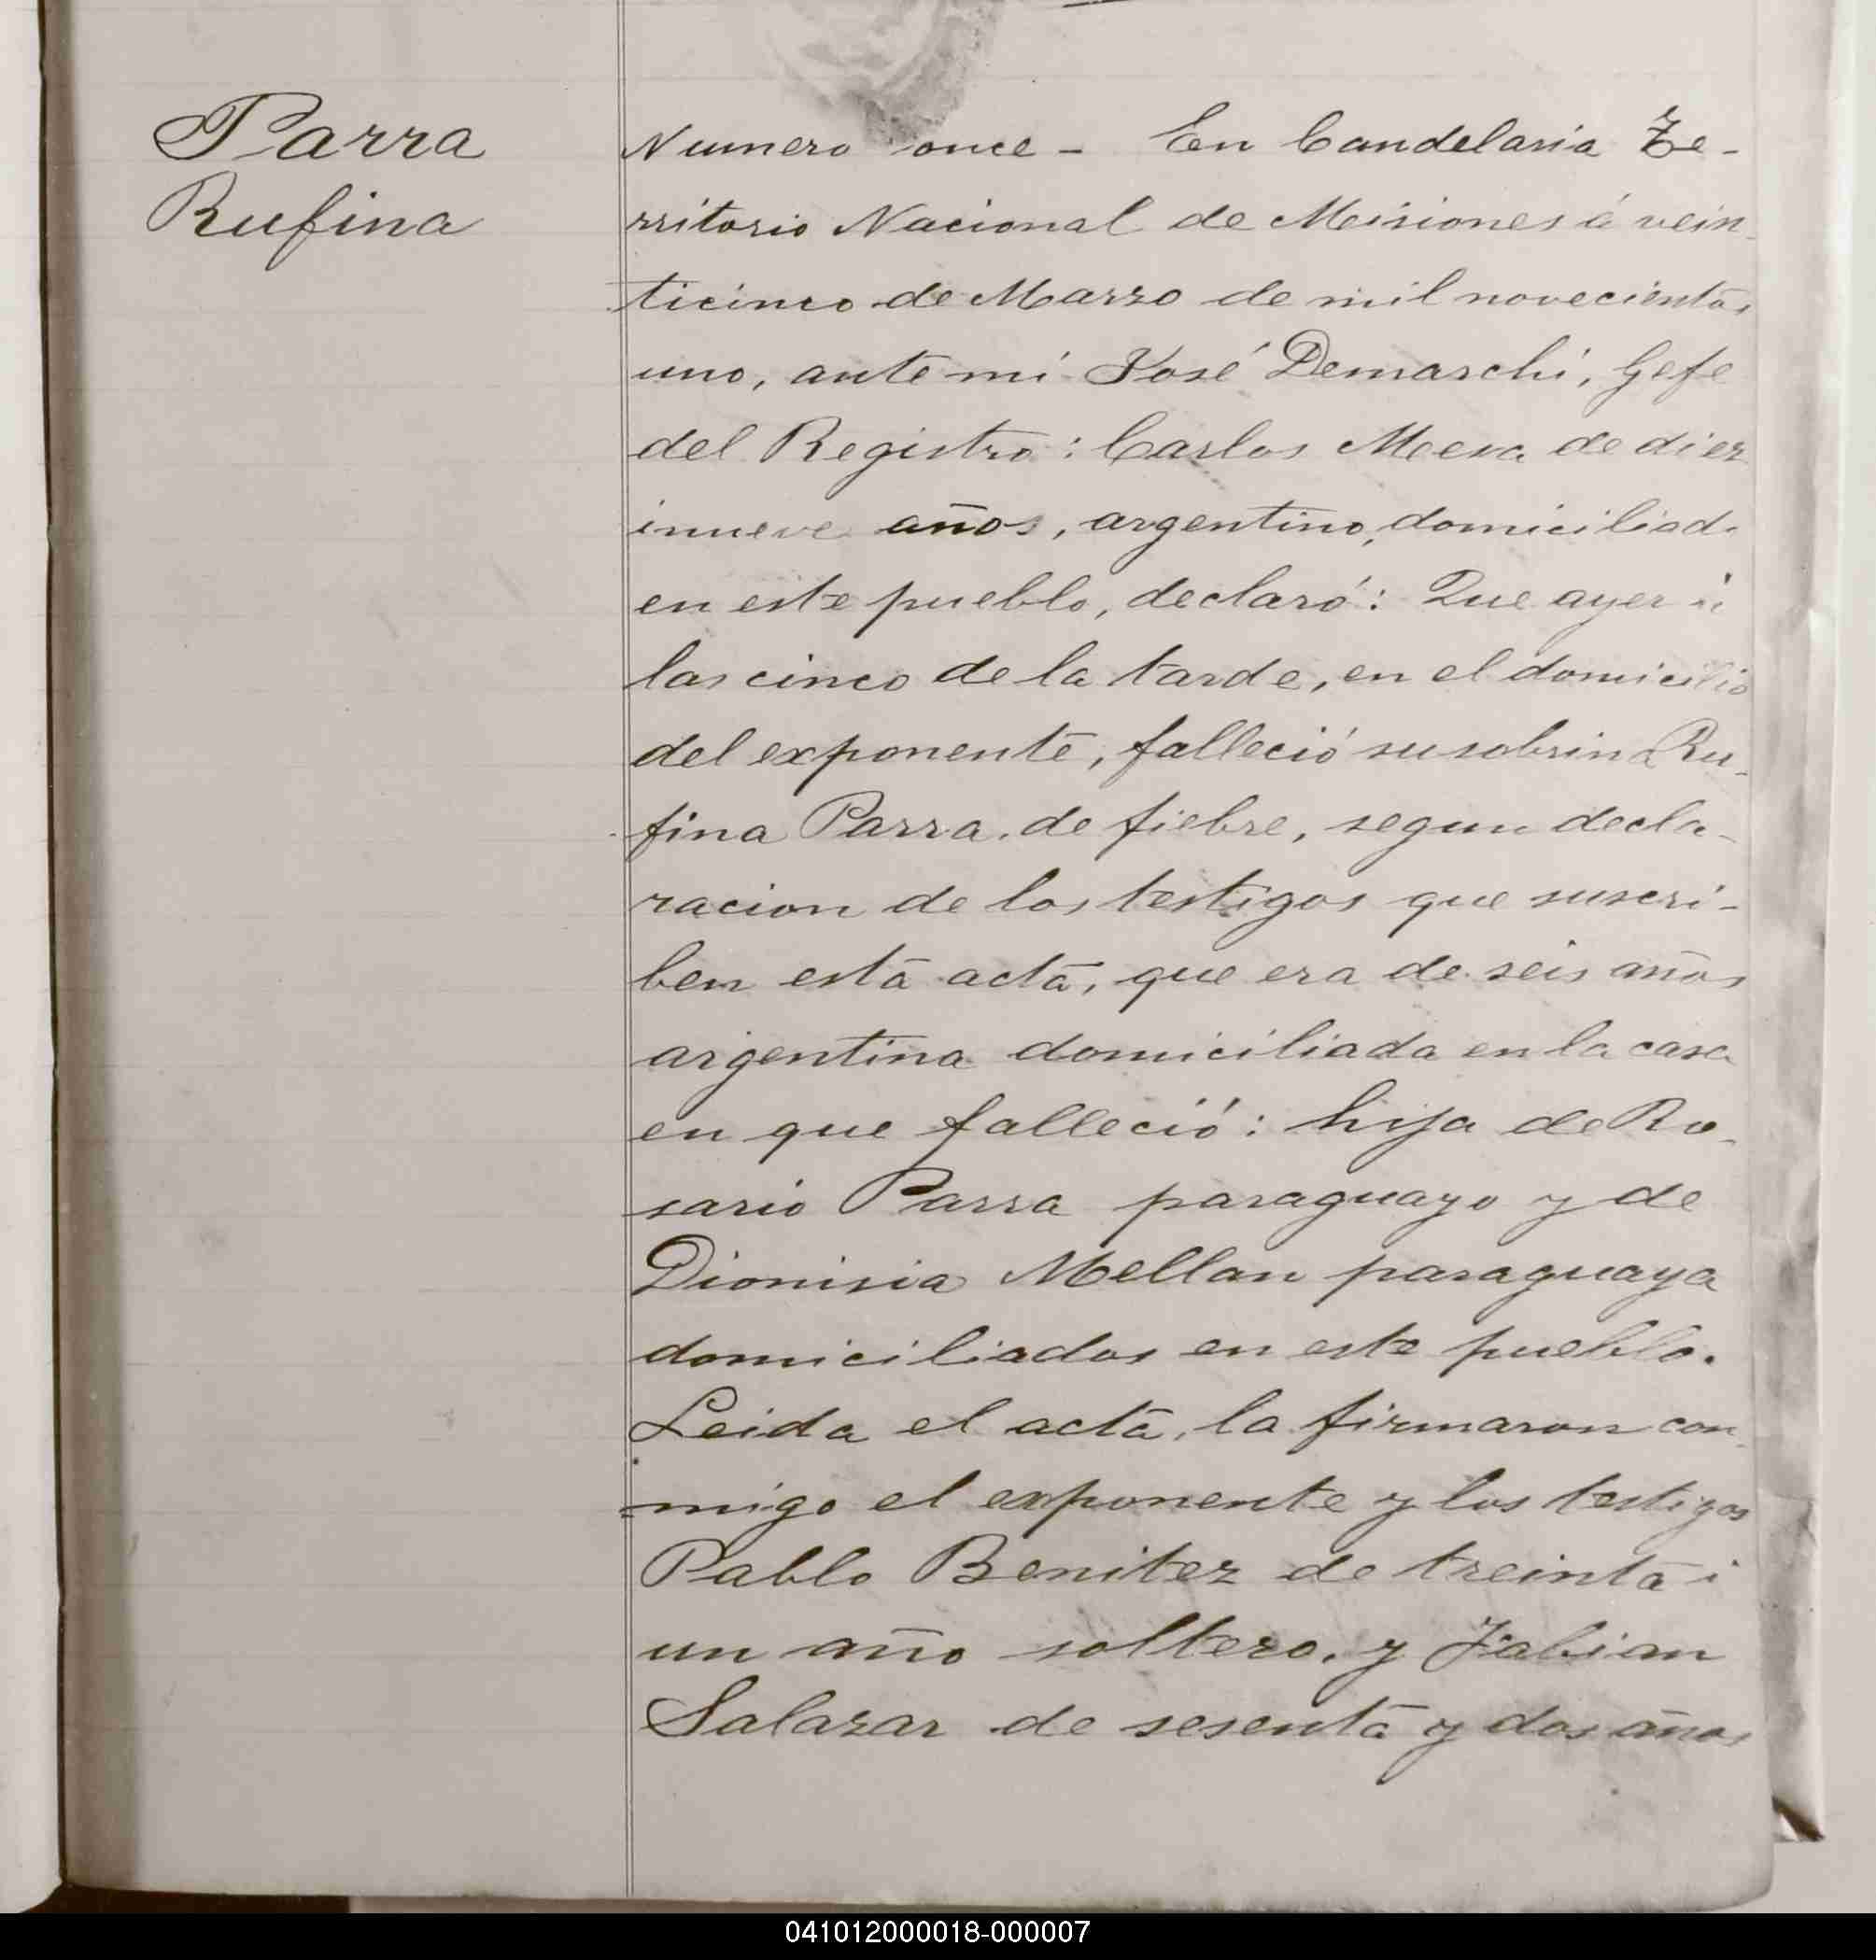 Parra
Rufina
Numero once - En Candelaria Te-
rritorio Nacional de Misiones á vein-
ticinco de Marzo de mil novecientos
uno, ante mi José Demarchi, Gefe
del Registro: Carlos Meza de diez
inueve años, argentino, domiciliado
en este pueblo, declaró: Que ayer á
las cinco de la tarde, en el domicilio
del exponente, falleció su sobrina Ru-
fina Parra, de fiebre, segun decla-
racion de los testigos que suscri-
ben esta acta, que era de seis años
argentina domiciliada en la casa
en que falleció: hija de Ro-
sario Parra paraguayo y de
Dionisia Mellan paraguaya
domiciliados en este pueblo.
Leida el acta, la firmaron con-
migo el exponente y los testigos
Pablo Benitez de treinta i
un año soltero, y Fabian
Salazar de sesenta y dos años
041012000018-000007